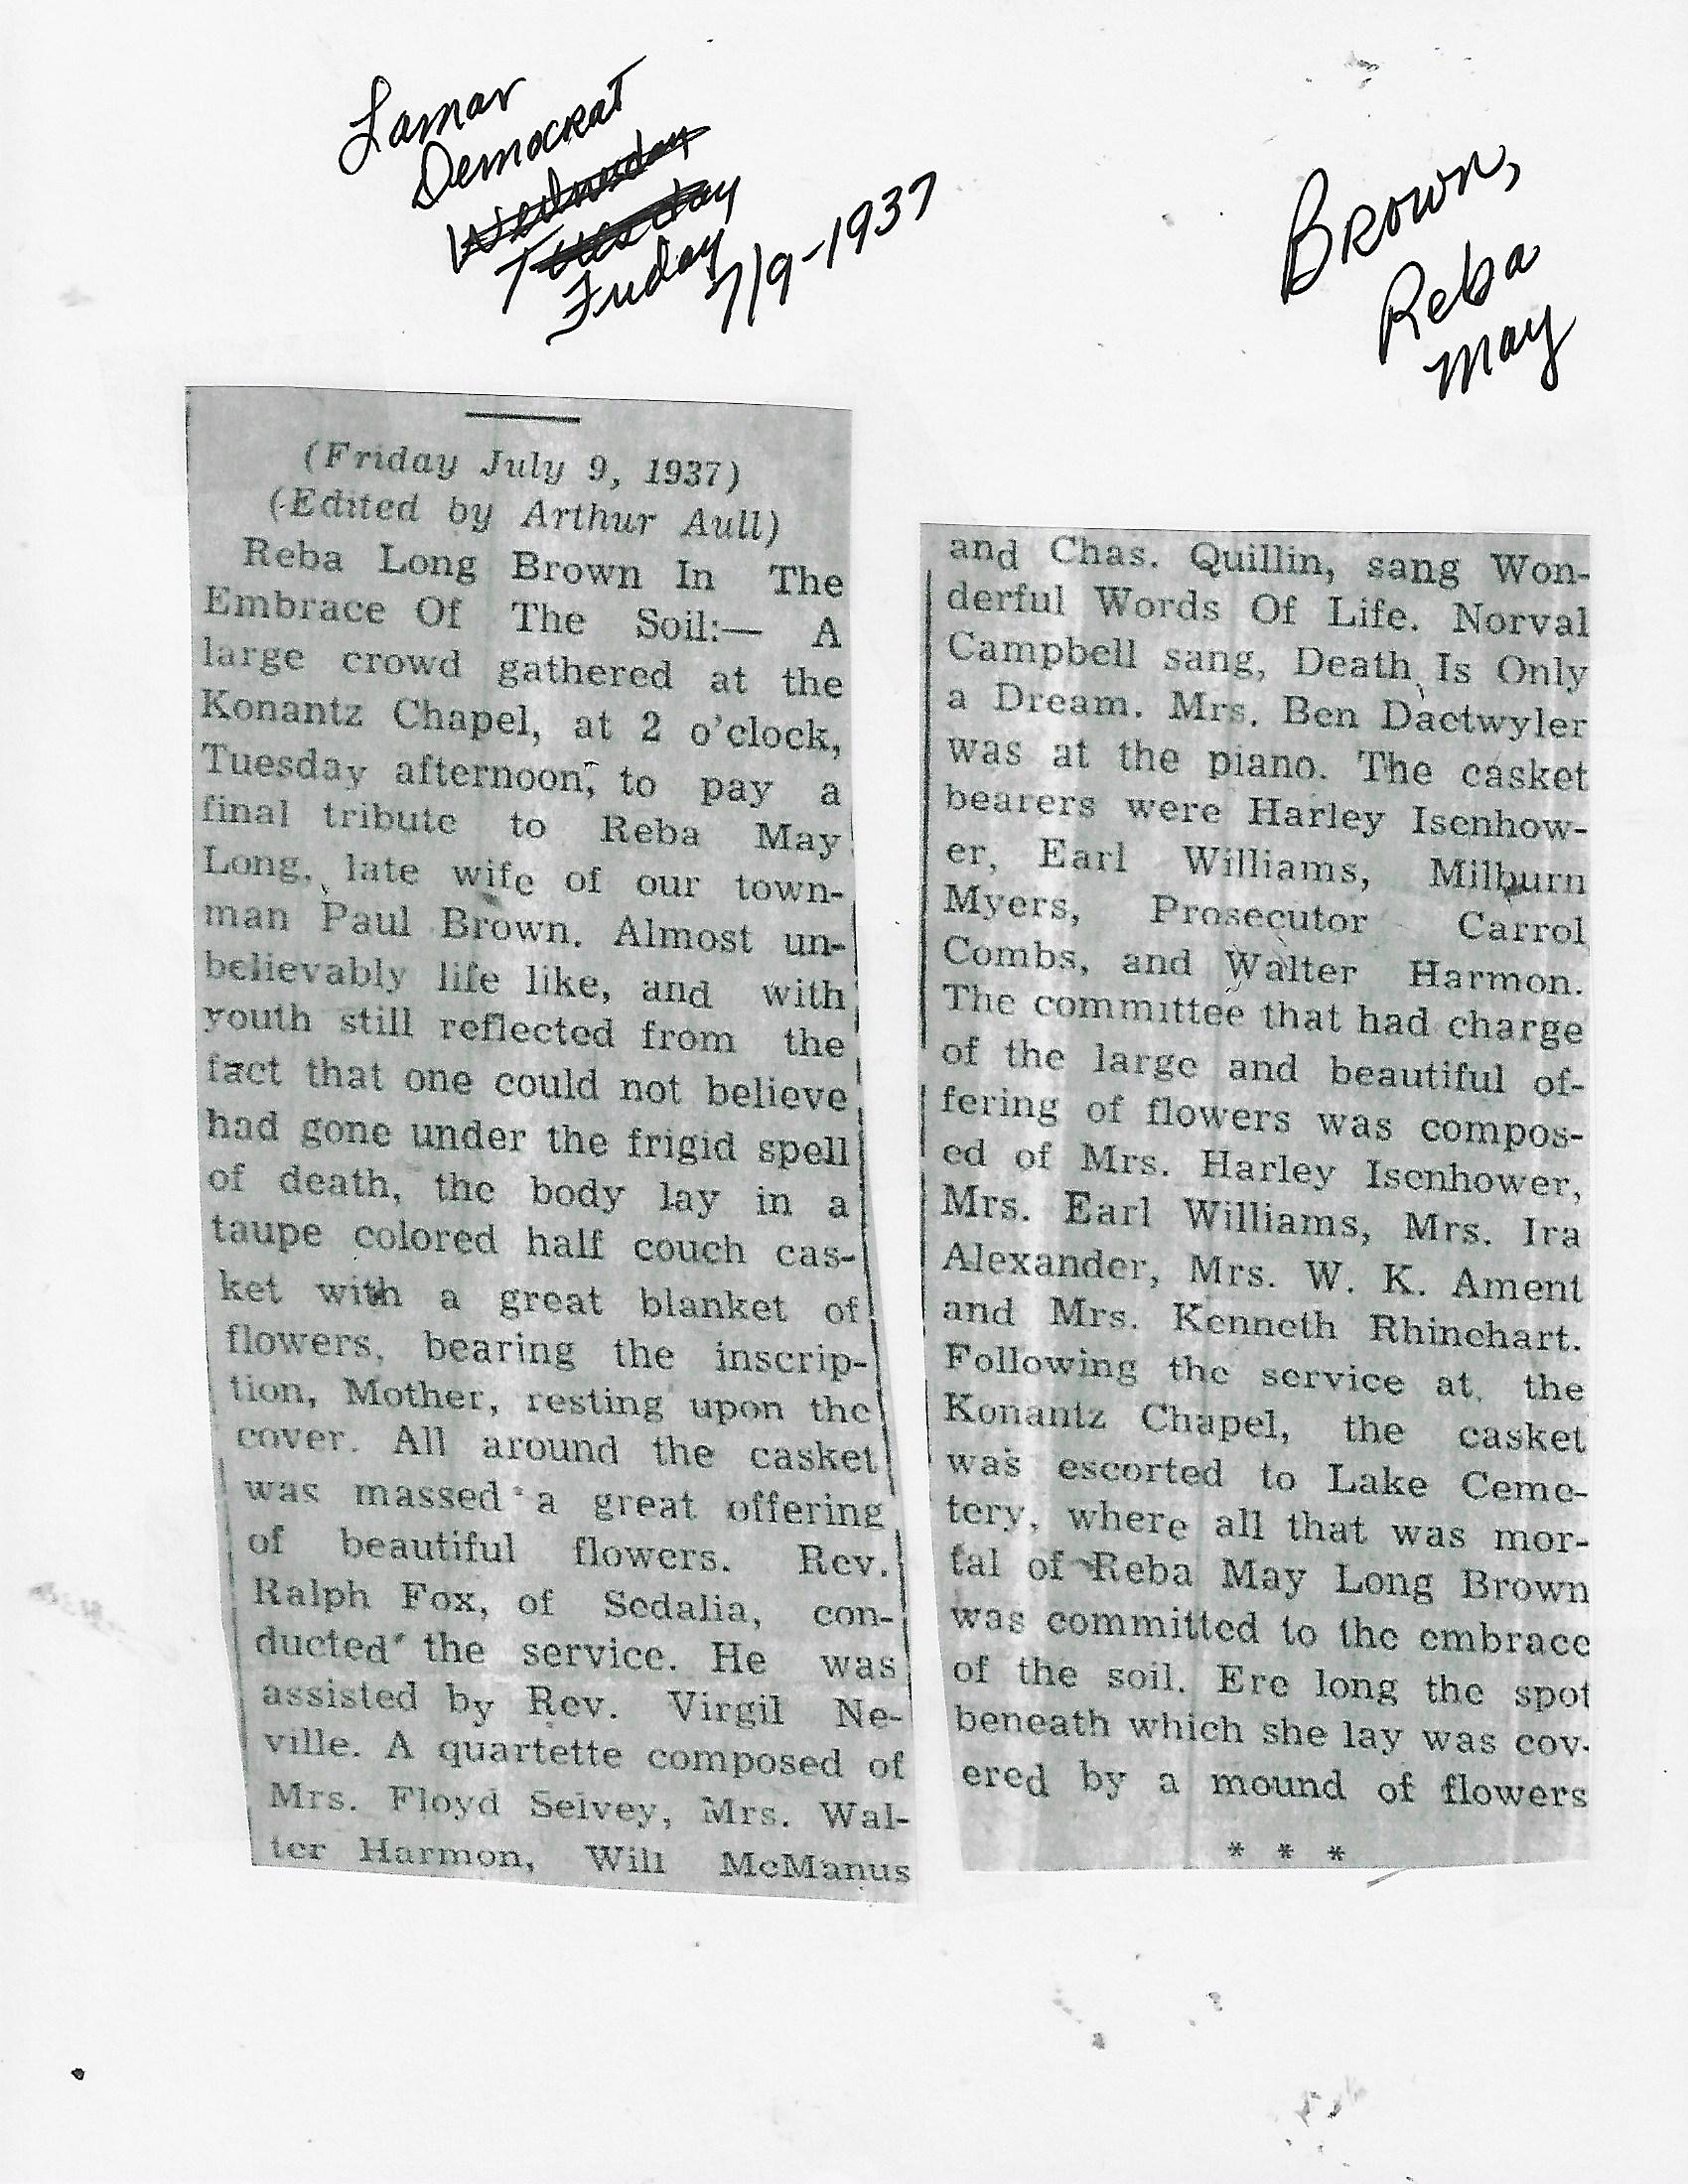 Lamar
Democrat
Wednesday
Tuesday
Friday
7/9-1937
Brown,
Reba
May
(Friday July 9, 1937)
(Edited by Arthur Aull)
Reba Long Brown In The
Embrace Of The Soil:— A
large crowd gathered at the
Konantz Chapel, at 2 o'clock,
Tuesday afternoon, to pay a
final tribute to Reba May
Long, late wife of our town-
man Paul Brown. Almost un-
believably life like, and with
youth still reflected from the
fact that one could not believe
had gone under the frigid spell
of death, the body lay in a
taupe colored half couch cas-
ket with a great blanket of
flowers, bearing the inscrip-
tion, Mother, resting upon the
cover. All around the casket
was massed a great offering
of beautiful flowers. Rev.
Ralph Fox, of Sedalia, con-
ducted the service. He was
assisted by Rev. Virgil Ne-
ville. A quartette composed of
Mrs. Floyd Selvey, Mrs. Wal-
ter Harmon, Will McManus
and Chas. Quillin, sang Won-
derful Words Of Life. Norval
Campbell sang, Death Is Only
a Dream. Mrs. Ben Dactwyler
was at the piano. The casket
bearers were Harley Isenhow-
er, Earl Williams, Milburn
Myers, Prosecutor Carrol
Combs, and Walter Harmon.
The committee that had charge
of the large and beautiful of-
fering of flowers was compos-
ed of Mrs. Harley Isenhower,
Mrs. Earl Williams, Mrs. Ira
Alexander, Mrs. W. K. Ament
and Mrs. Kenneth Rhinehart.
Following the service at the
Konantz Chapel, the casket
was escorted to Lake Ceme-
tery, where all that was mor-
tal of Reba May Long Brown
was committed to the embrace
of the soil. Ere long the spot
beneath which she lay was cov-
ered by a mound of flowers
* * *